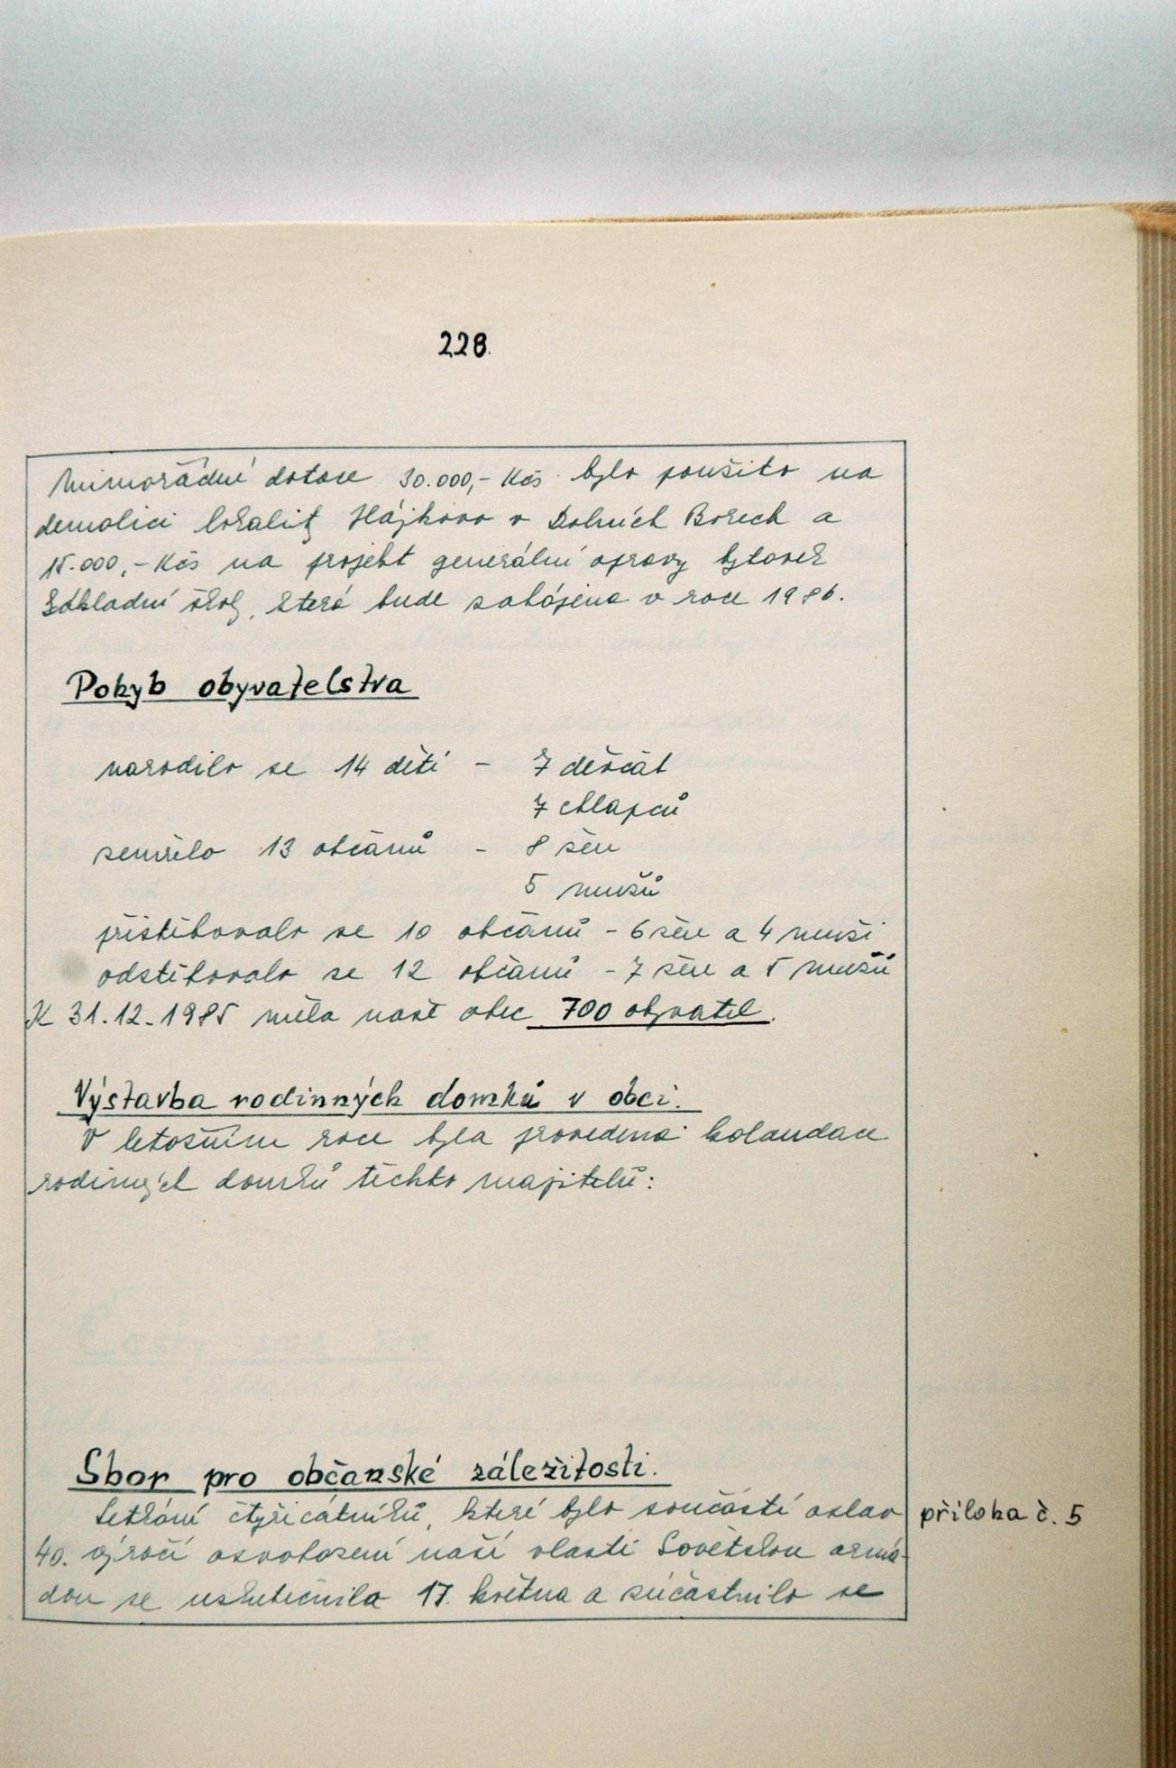 228.
Mimořádné dotace 30.000,- Kčs bylo použito na
demolici lokality Hájkovo v Dolních Borech a
15.000,- Kčs na projekt generální opravy bytovek
Základní školy, která bude zahájena v roce 1986.
Pohyb obyvatelstva
narodilo se 14 dětí - 7 děvčat
7 chlapců
zemřelo 13 občanů - 8 žen
5 mužů
přistěhovalo se 10 občanů - 6 žen a 4 muži
odstěhovalo se 12 občanů - 7 žen a 5 mužů
K 31.12.1985 měla naše obec 700 obyvatel.
Výstavba rodinných domků v obci.
V letošním roce byla provedena kolaudace
rodinných domků těchto majitelů:
Sbor pro občanské záležitosti.
Setkání čtyřicátníků, které bylo součástí oslav
příloha č. 5
40. výročí osvobození naší vlasti Sovětskou armá-
dou se uskutečnila 17. května a zúčastnilo se